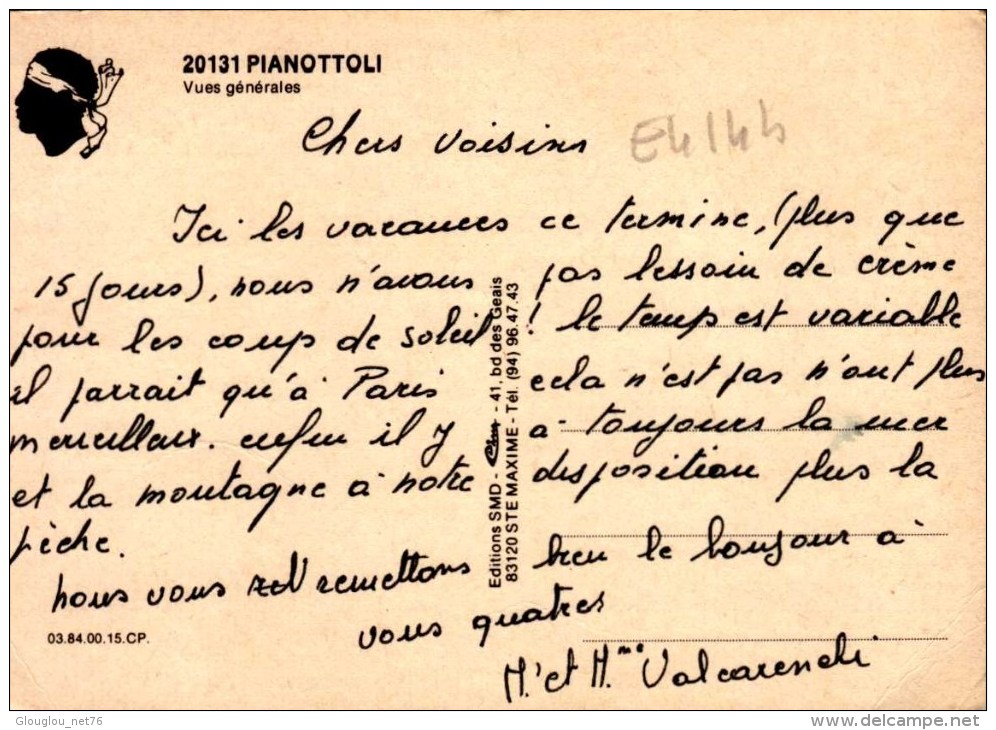 20131 PIANOTTOLI
Vues générales
E4144
Chers voisins
Ici les vacances ce termine, (plus que
15 jours), nous n'avons pas besoin de crème
pour les coup de soleil ! le temps est variable
il parrait qu'à Paris cela n'est pas n'ont plus
merveilleux. enfin il y a toujours la mer
et la montagne à notre disposition plus la
pêche.
nous vous remettons bien le bonjour à
vous quatres
M. et Mme
Editions SMD - - 41, bd des Geais
83120 STE MAXIME - Tél. (94) 96.47.43
03.84.00.15.CP.
Glouglou_net76
delcampe.net